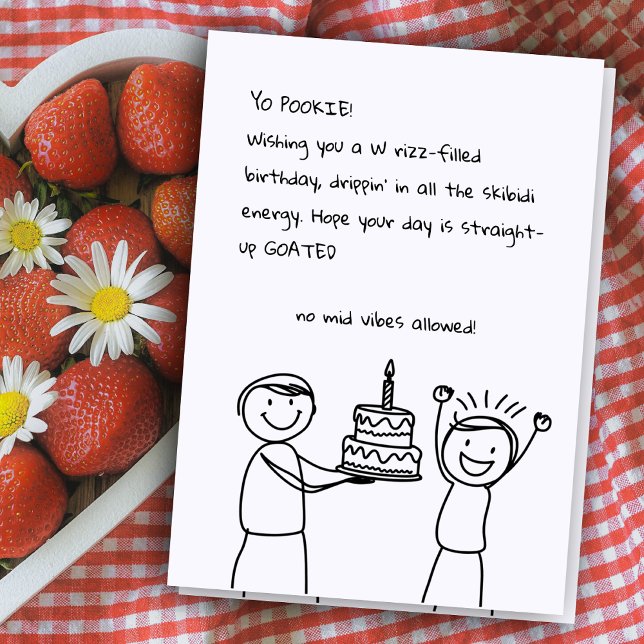 Yo POOKIE!
Wishing you a W rizz-filled
birthday, drippin' in all the skibidi
energy. Hope your day is straight-
up GOATED
no mid vibes allowed!